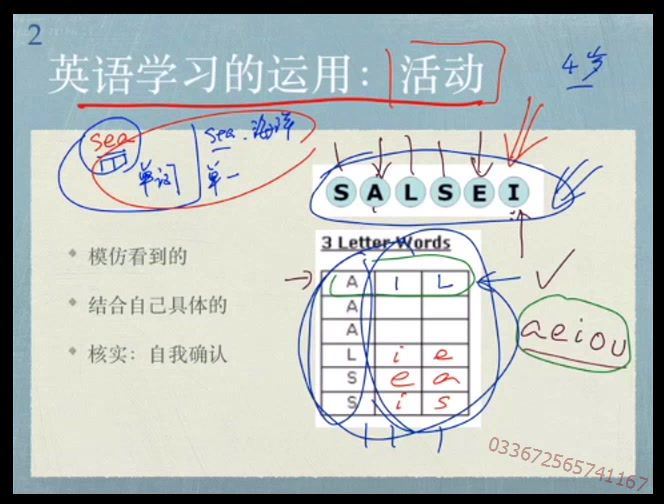 2
英语学习的运用：活动
4岁
sea
sea.海洋
单词
单一
S A L S E I
3 Letter Words
模仿看到的
结合自己具体的
核实：自我确认
A I L
A
A
L i e
S e a
S i s
aeiou
033672565741167